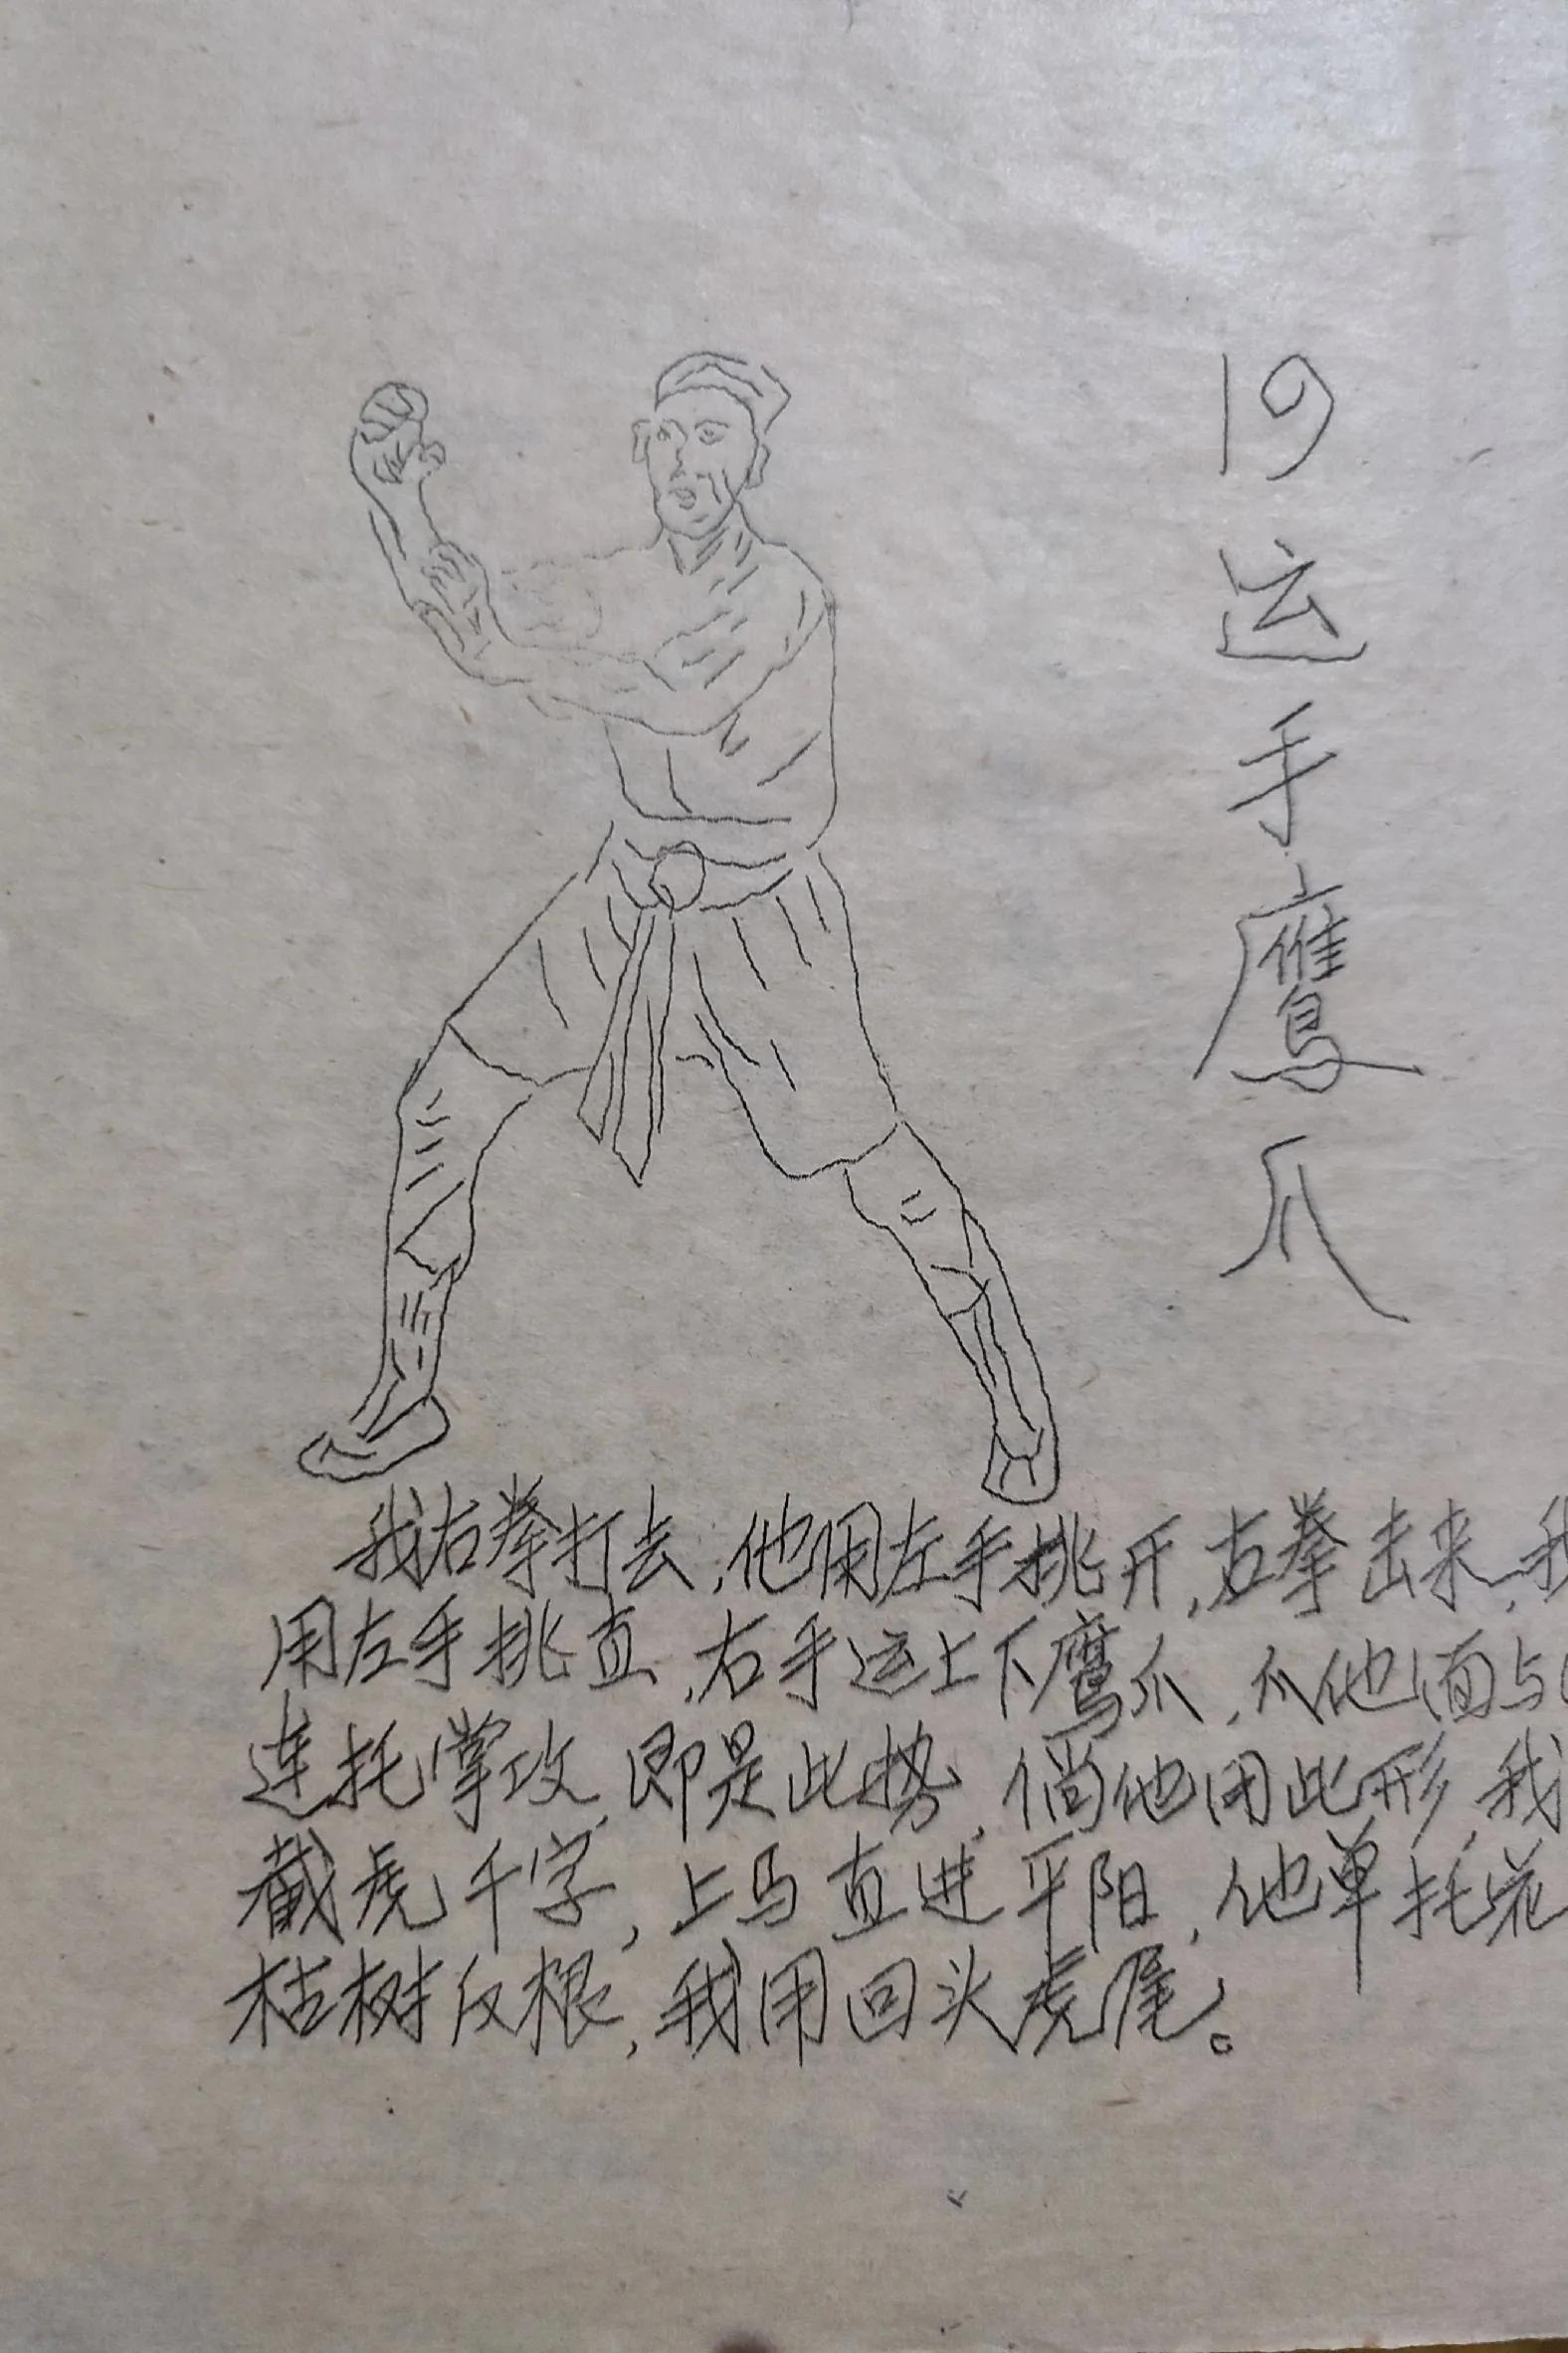 19运手鹰爪
我右拳打去,他用左手挑开,右拳击来,我
用左手挑直,右手运上下鹰爪,爪他面与
连托掌攻,即是此势,倘他用此形,我
截虎千字,上马直进平阳,他单托
枯树仅根,我用回头虎尾。